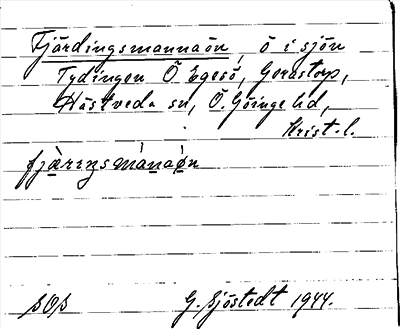 Fjärdingsmannaön, ö i sjön
Tydingen Ö Egesö, Gerastorp,
Hästveda sn, Ö. Göinge hd,
Krist. l.
fjæ̀riŋsmánaǿn
SOS
G. Sjöstedt 1944.